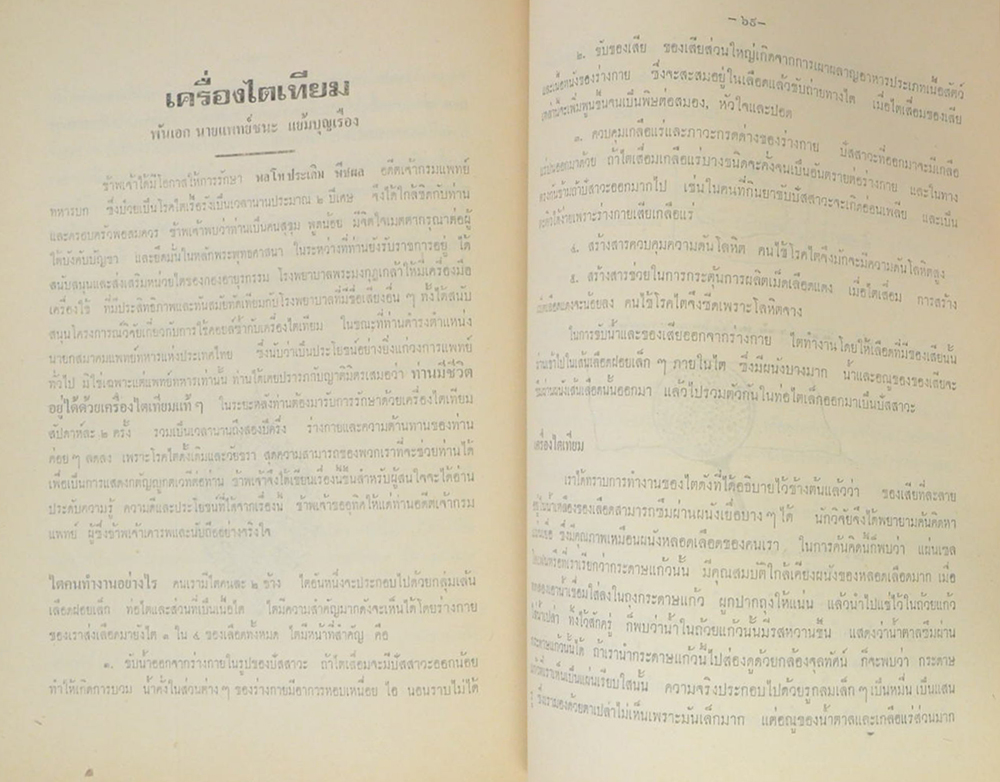 เครื่องไตเทียม
พันเอก นายแพทย์ชนะ แย้มบุญเรือง
ข้าพเจ้าได้มีโอกาสให้การรักษา พลโทประเดิม พีชผล อดีตเจ้ากรมแพทย์
ทหารบก ซึ่งป่วยเป็นโรคไตเรื้อรังเป็นเวลานานประมาณ ๒ ปีเศษ จึงได้ใกล้ชิดกับท่าน
และครอบครัวพอสมควร ข้าพเจ้าพบว่าท่านเป็นคนสุขุม พูดน้อย มีจิตใจเมตตากรุณาต่อผู้
ใต้บังคับบัญชา และยึดมั่นในหลักพระพุทธศาสนา ในระหว่างที่ท่านยังรับราชการอยู่ ได้
สนับสนุนและส่งเสริมหน่วยไตของกองอายุรกรรม โรงพยาบาลพระมงกุฎเกล้าให้มีเครื่องมือ
เครื่องใช้ ที่มีประสิทธิภาพและทันสมัยทัดเทียมกับโรงพยาบาลที่มีชื่อเสียงอื่น ๆ ทั้งได้สนับ
สนุนโครงการวิจัยเกี่ยวกับการใช้คอยล์ซ้ำกับเครื่องไตเทียม ในขณะที่ท่านดำรงตำแหน่ง
นายกสมาคมแพทย์ทหารแห่งประเทศไทย ซึ่งนับว่าเป็นประโยชน์อย่างยิ่งแก่วงการแพทย์
ทั่วไป มิใช่เฉพาะแต่แพทย์ทหารเท่านั้น ท่านได้เคยปรารภกับญาติมิตรเสมอว่า ท่านมีชีวิต
อยู่ได้ด้วยเครื่องไตเทียมแท้ ๆ ในระยะหลังท่านต้องมารับการรักษาด้วยเครื่องไตเทียม
สัปดาห์ละ ๒ ครั้ง รวมเป็นเวลานานถึงสองปีครึ่ง ร่างกายและความต้านทานของท่าน
ค่อยๆ ลดลง เพราะโรคไตดั้งเดิมและวัยชรา สุดความสามารถของพวกเราที่จะช่วยท่านได้
เพื่อเป็นการแสดงกตัญญูกตเวทีต่อท่าน ข้าพเจ้าจึงได้เขียนเรื่องนี้ขึ้นสำหรับผู้สนใจจะได้อ่าน
ประดับความรู้ ความดีและประโยชน์ที่ได้จากเรื่องนี้ ข้าพเจ้าขออุทิศให้แด่ท่านอดีตเจ้ากรม
แพทย์ ผู้ซึ่งข้าพเจ้าเคารพและนับถืออย่างจริงใจ
ไตคนทำงานอย่างไร คนเรามีไตคนละ ๒ ข้าง ไตอันหนึ่งจะประกอบไปด้วยกลุ่มเส้น
เลือดฝอยเล็ก ท่อไตและส่วนที่เป็นเนื้อไต ไตมีความสำคัญมากดังจะเห็นได้โดยร่างกาย
ของเราส่งเลือดมายังไต ๑ ใน ๔ ของเลือดทั้งหมด ไตมีหน้าที่สำคัญ คือ
๑. ขับน้ำออกจากร่างกายในรูปของปัสสาวะ ถ้าไตเสื่อมจะมีปัสสาวะออกน้อย
ทำให้เกิดการบวม น้ำคั่งในส่วนต่างๆ ของร่างกายมีอาการหอบเหนื่อย ไอ นอนราบไม่ได้
— ๖๙—
๒. ขับของเสีย ของเสียส่วนใหญ่เกิดจากการเผาผลาญอาหารประเภทเนื้อสัตว์
และเนื้อหนังของร่างกาย ซึ่งจะสะสมอยู่ในเลือดแล้วขับถ่ายทางไต เมื่อไตเสื่อมของเสีย
เหล่านี้จะเพิ่มพูนขึ้นจนเป็นพิษต่อสมอง, หัวใจและปอด
๓. ควบคุมเกลือแร่และภาวะกรดด่างของร่างกาย ปัสสาวะที่ออกมาจะมีเกลือ
แร่ปนออกมาด้วย ถ้าไตเสื่อมเกลือแร่บางชนิดจะคั่งจนเป็นอันตรายต่อร่างกาย และในทาง
ตรงกันข้ามถ้าปัสสาวะออกมากไป เช่นในคนที่กินยาขับปัสสาวะจะเกิดอ่อนเพลีย และเป็น
เพราะร่างกายเสียเกลือแร่
๔. สร้างสารควบคุมความดันโลหิต คนไข้โรคไตจึงมักจะมีความดันโลหิตสูง
๕. สร้างสารช่วยในการกระตุ้นการผลิตเม็ดเลือดแดง เมื่อไตเสื่อม การสร้าง
เม็ดเลือดแดงจะน้อยลง คนไข้โรคไตจึงซีดเพราะโลหิตจาง
ในการขับน้ำและของเสียออกจากร่างกาย ไตทำงานโดยให้เลือดที่มีของเสียนั้น
ผ่านเข้าไปในเส้นเลือดฝอยเล็ก ๆ ภายในไต ซึ่งมีผนังบางมาก น้ำและอณูของของเสียจะ
ซึมผ่านผนังเส้นเลือดนั้นออกมา แล้วไปรวมตัวกันในท่อไตเล็กออกมาเป็นปัสสาวะ
เครื่องไตเทียม
เราได้ทราบการทำงานของไตดังที่ได้อธิบายไว้ข้างต้นแล้วว่า ของเสียที่ละลาย
อยู่ในน้ำเหลืองของเลือดสามารถซึมผ่านผนังเยื่อบางๆ ได้ นักวิจัยจึงได้พยายามค้นคิดหา
แผ่นเยื่อ ซึ่งมีคุณภาพเหมือนผนังหลอดเลือดของคนเรา ในการค้นคิดนี้ก็พบว่า แผ่นเซล
ที่เราเรียกว่ากระดาษแก้วนั้น มีคุณสมบัติใกล้เคียงผนังของหลอดเลือดมาก เมื่อ
น้ำเชื่อมใส่ลงในถุงกระดาษแก้ว ผูกปากถุงให้แน่น แล้วนำไปแช่ไว้ในถ้วยแก้ว
ใส่น้ำเปล่า ทิ้งไว้สักครู่ ก็พบว่าน้ำในถ้วยแก้วนั้นมีรสหวานขึ้น แสดงว่าน้ำตาลซึมผ่าน
กระดาษแก้วนั้นได้ ถ้าเรานำกระดาษแก้วนี้ไปส่องดูด้วยกล้องจุลทัศน์ ก็จะพบว่า กระดาษ
แก้วที่เราเห็นเป็นแผ่นเรียบใสนั้น ความจริงประกอบไปด้วยรูกลมเล็กๆ เป็นหมื่น เป็นแสน
รู ซึ่งเรามองด้วยตาเปล่าไม่เห็นเพราะมันเล็กมาก แต่อณูของน้ำตาลและเกลือแร่ส่วนมาก